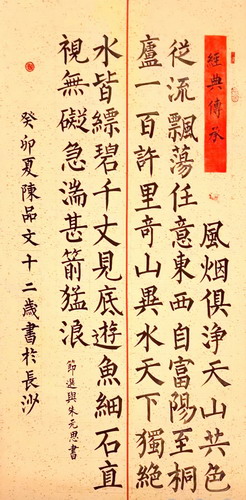 經典傳承
風烟俱淨天山共色
從流飄蕩任意東西自富陽至桐
廬一百許里奇山異水天下獨絕
水皆縹碧千丈見底遊魚細石直
視無礙急湍甚箭猛浪
節選與朱元思書
癸卯夏陳品文十二歲書於長沙